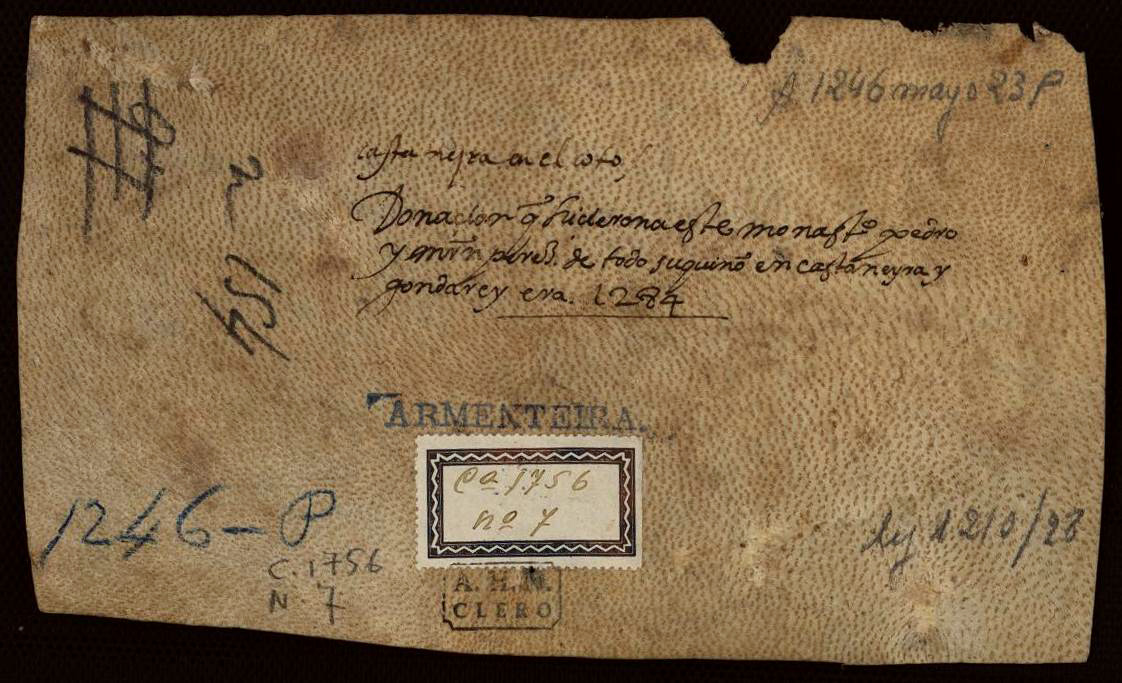 A 1246 mayo 23 P
castaneyra en el coto,
Donaçion q̃ hicieron a este monastº pedro
y mrñ perez. de todo su quinõ en castaneyra y
gondarey era. 1284
2
154
ARMENTEIRA.
Ca 1756
nº 7
1246 - P
C. 1756
N. 7
A. H. N.
CLERO